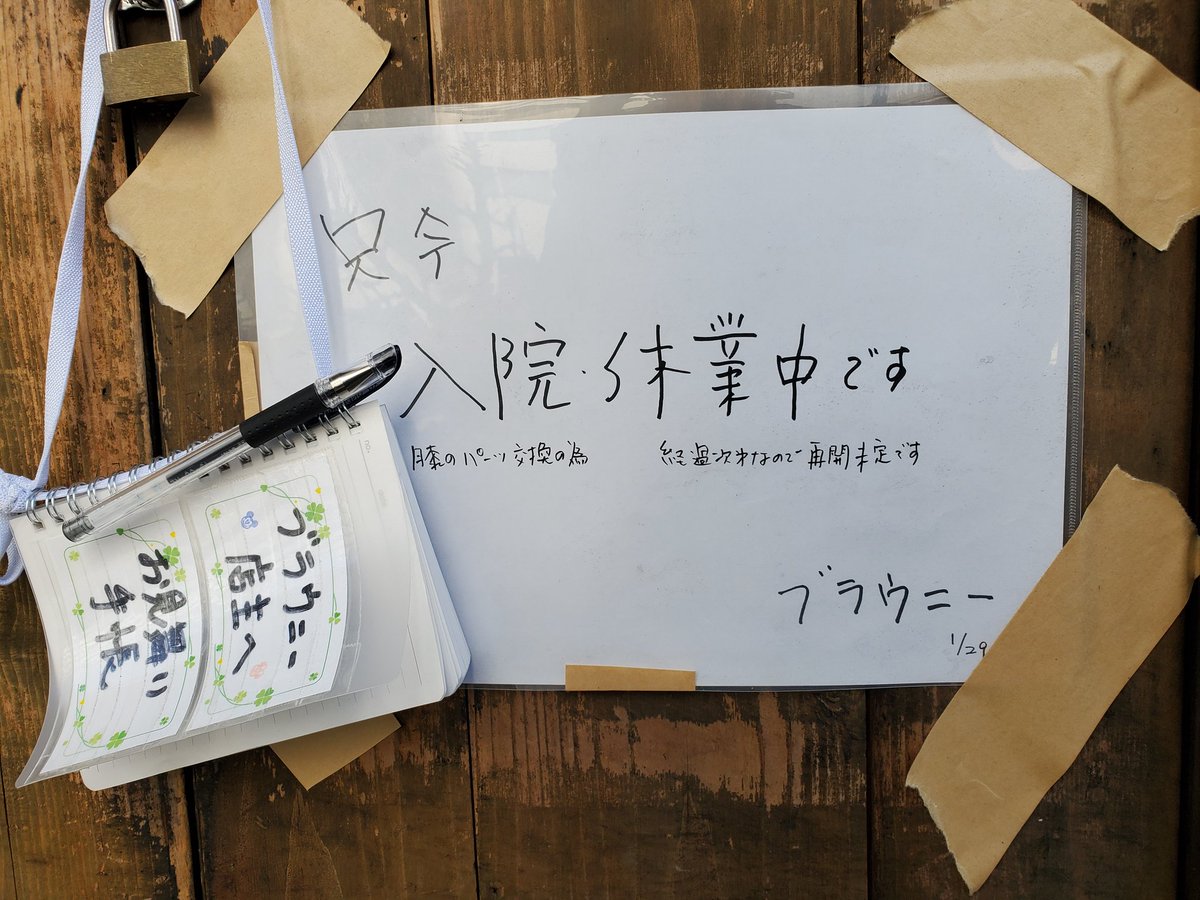 只今
入院・休業中です
膝のパーツ交換の為 経過次第なので再開未定です
ブラウニー
1/29
ブラウニー
店主へ
お見舞い
手帳